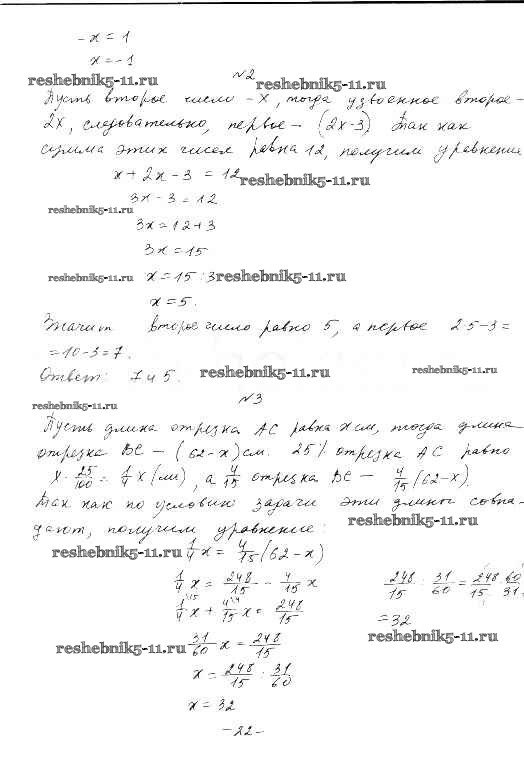 -x = 1
x = -1
reshebnik5-11.ru
№2
reshebnik5-11.ru
Пусть второе число - x, тогда удвоенное второе -
2x, следовательно, первое - (2x-3) Так как
сумма этих чисел равна 12, получим уравнение
x + 2x - 3 = 12
reshebnik5-11.ru
3x - 3 = 12
reshebnik5-11.ru
3x = 12 + 3
3x = 15
reshebnik5-11.ru
x = 15 : 3
reshebnik5-11.ru
x = 5.
Значит второе число равно 5, а первое 2·5-3 =
= 10-3 = 7.
Ответ: 7 и 5.
reshebnik5-11.ru
reshebnik5-11.ru
№3
reshebnik5-11.ru
Пусть длина отрезка AC равна x см, тогда длина
отрезка BC - (62-x) см. 25% отрезка AC равно
x · 25/100 = 1/4 x (см), а 4/15 отрезка BC - 4/15 (62-x).
Так как по условию задачи эти длины совпа-
reshebnik5-11.ru
дают, получим уравнение:
reshebnik5-11.ru
1/4 x = 4/15 (62-x)
1/4 x = 248/15 - 4/15 x
248/15 : 31/60 = 248/15 · 60/31
1/4 x + 4/15 x = 248/15
= 32
reshebnik5-11.ru
31/60 x = 248/15
reshebnik5-11.ru
x = 248/15 : 31/60
x = 32
-22-